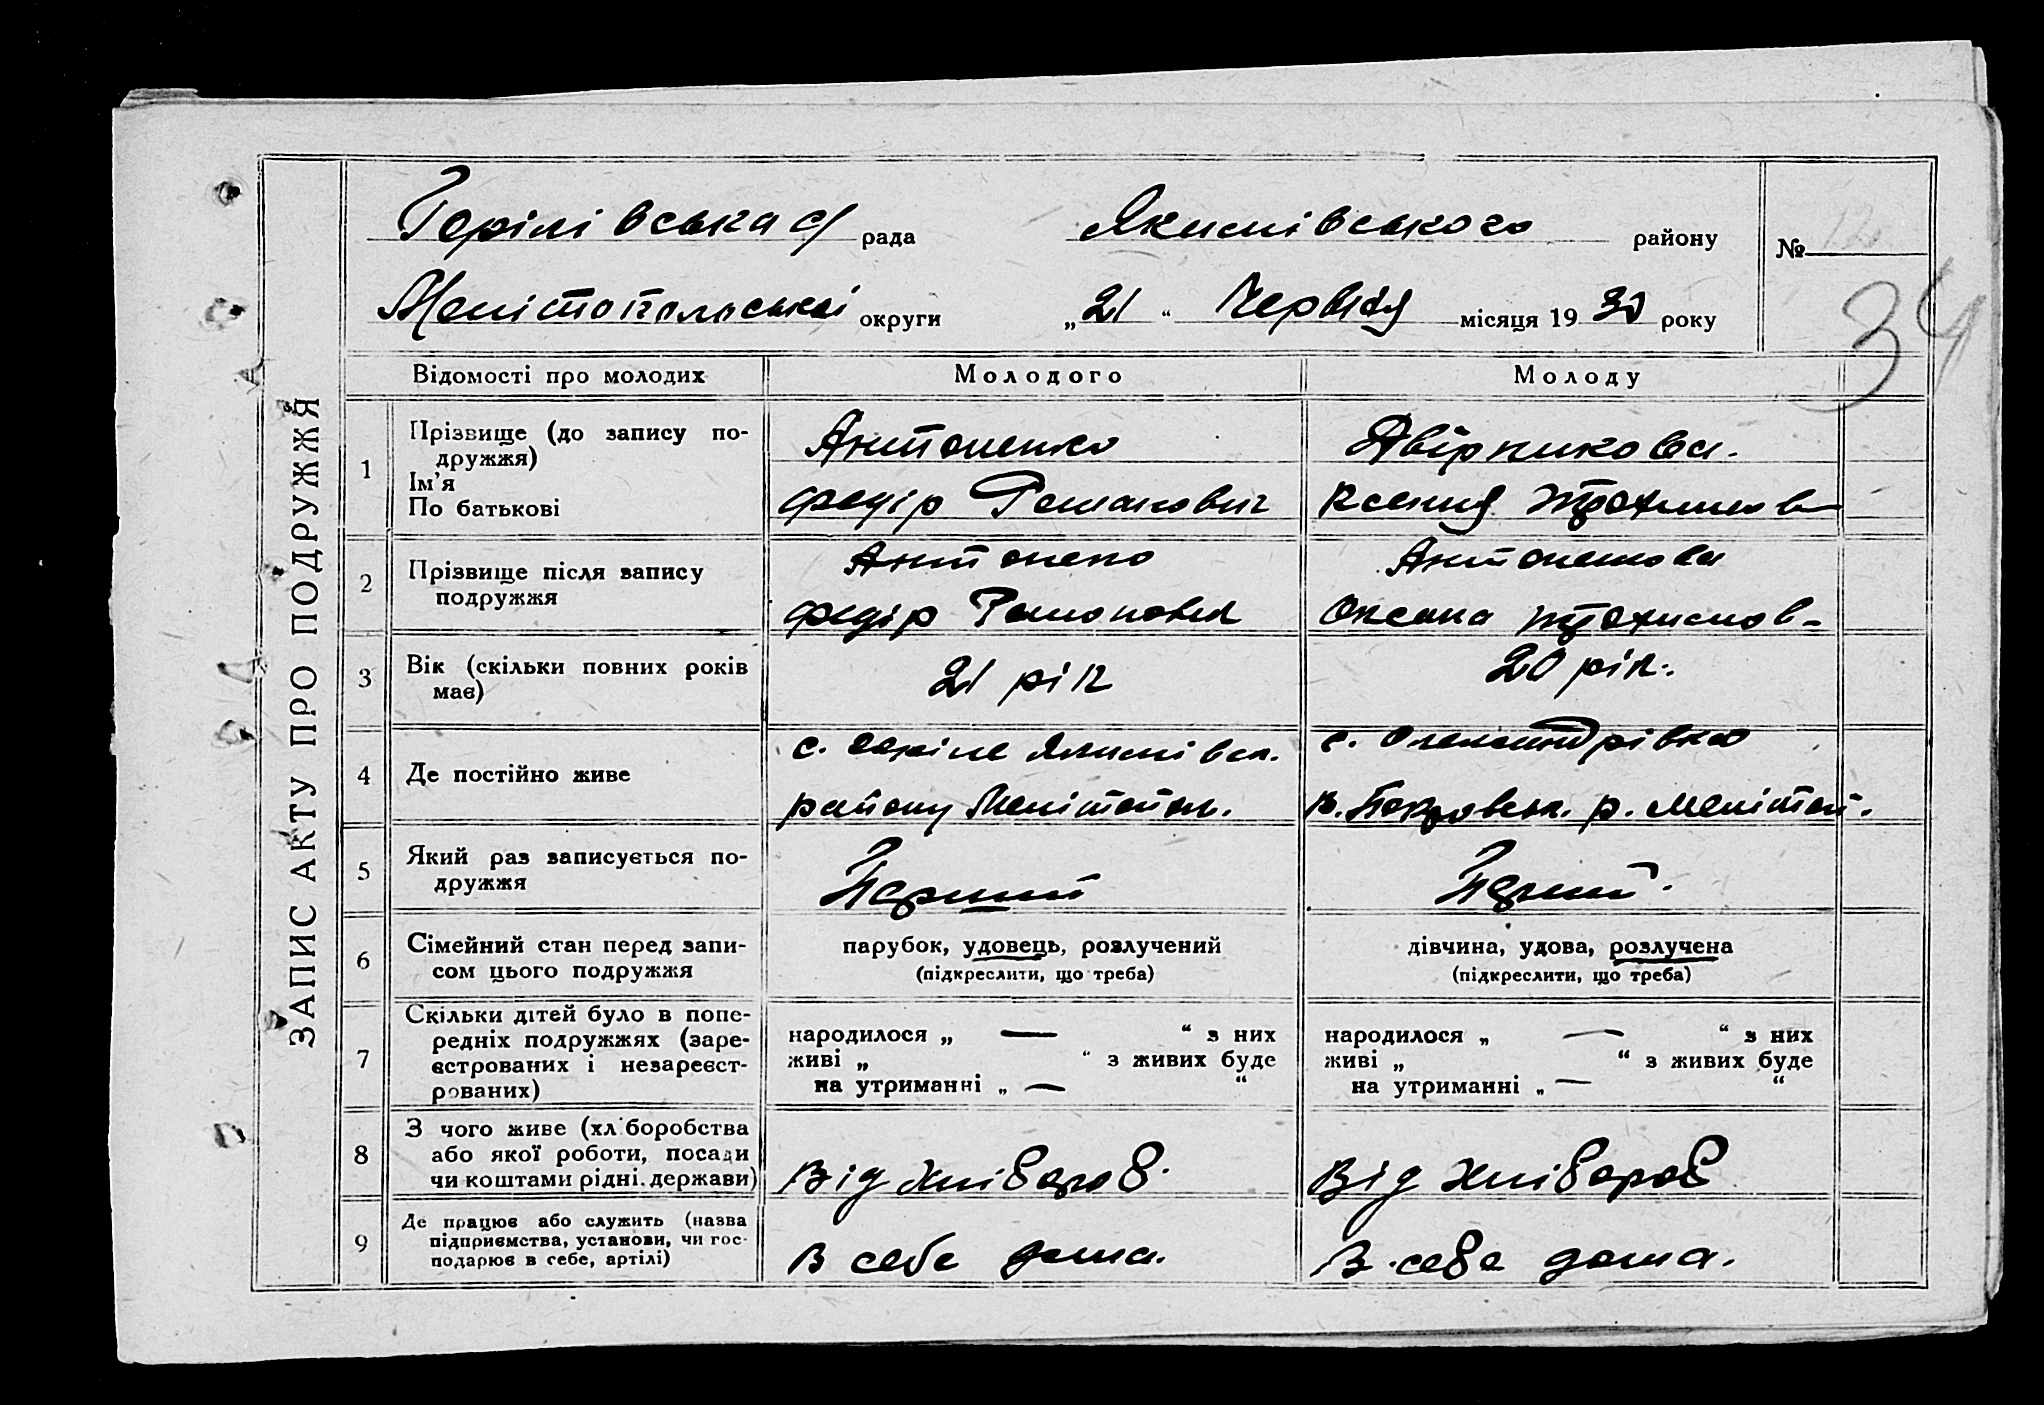 ЗАПИС АКТУ ПРО ПОДРУЖЖЯ
Горілівська с/ рада Якимівського району № 12
Мелітопольської округи „21“ Червня місяця 1930 року
34
Відомості про молодих Молодого Молоду
1 Прізвище (до запису подружжя) Антоненко Двірникова.
Ім'я
По батькові Федір Романович Ксения Трохимов
2 Прізвище після запису подружжя Антонено Антоненкова
Федір Романович Оксана Трохимов-
3 Вік (скільки повних років має) 21 рік 20 рік.
4 Де постійно живе с. Якимівсл. с. Олександрівка
району Мелітопол. Покровськ. р. Мелітоп.
5 Який раз записується подружжя Перший Перший.
6 Сімейний стан перед записом цього подружжя парубок, удовець, розлучений дівчина, удова, розлучена
(підкреслити, що треба) (підкреслити, що треба)
7 Скільки дітей було в попередніх подружжях (зареєстрованих і незареєстрованих) народилося „ — “ з них народилося „ — “ з них
живі „ “ з живих буде живі „ “ з живих буде
на утриманні „ — “ на утриманні „ — “
8 З чого живе (хліборобства або якої роботи, посади чи коштами рідні. держави) Від хлібороб. Від хлібороб
9 Де працює або служить (назва підприємства, установи, чи господарює в себе, артілі) В себе дома. В себе дома.